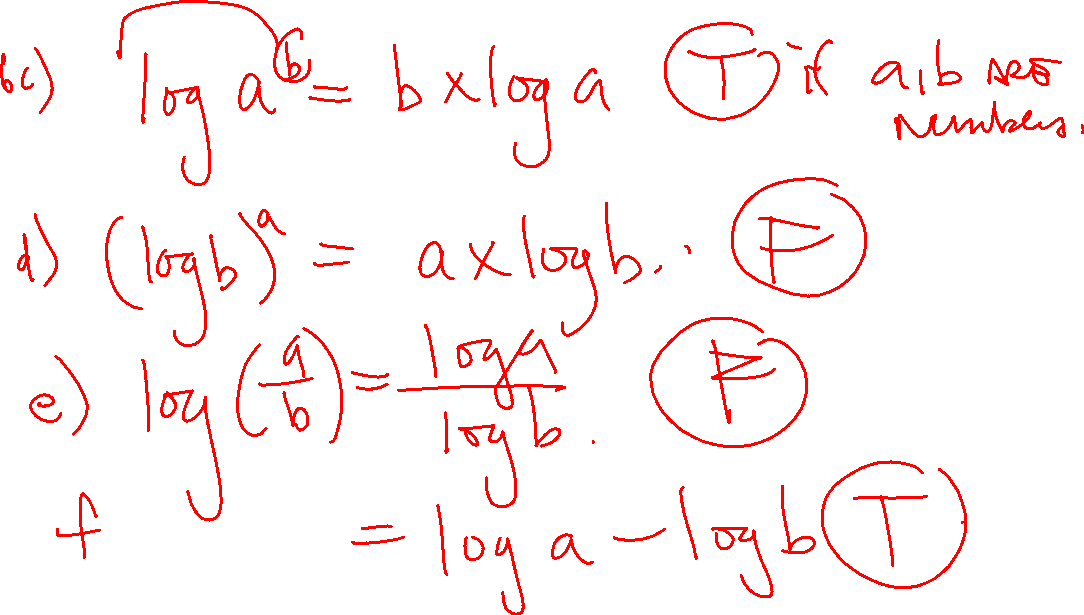 bc) log a^b = b x log a (T) if a,b ARE
Numbers.
d) (log b)^a = a x log b. (F)
e) log (a/b) = log a / log b. (F)
f = log a - log b (T)